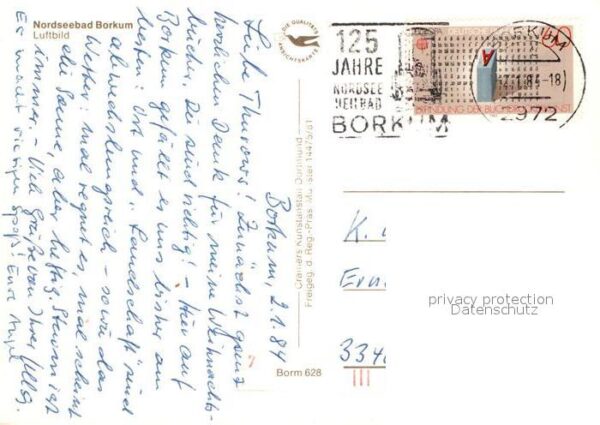 Nordseebad Borkum
Luftbild
DIE QUALITÄTS
ANSICHTSKARTE
125
JAHRE
NORDSEE
HEILBAD
BORKUM
BORKUM
1.84-18
2972
60
A
ERFINDUNG DER BUCHDRUCKERKUNST
Borkum, 2.1.84
Liebe Thurows! Zunächst ganz
herzlichen Dank für meine Weihnachts-
bücher. Sie sind richtig! - Hier auf
Borkum gefällt es uns bisher am
besten! Ort und Landschaft sind
abwechslungsreich - sowie das
Wetter: mal regnet es, mal scheint
die Sonne, aber heftig. Sturm ist
immer. - Viele Grüße von Ihrer
Es macht richtigen Spaß! Eure
Cramers Kunstanstalt Dortmund
Freigeg. d. Reg.-Präs. Münster
Borm 628
K.
334
privacy protection
Datenschutz